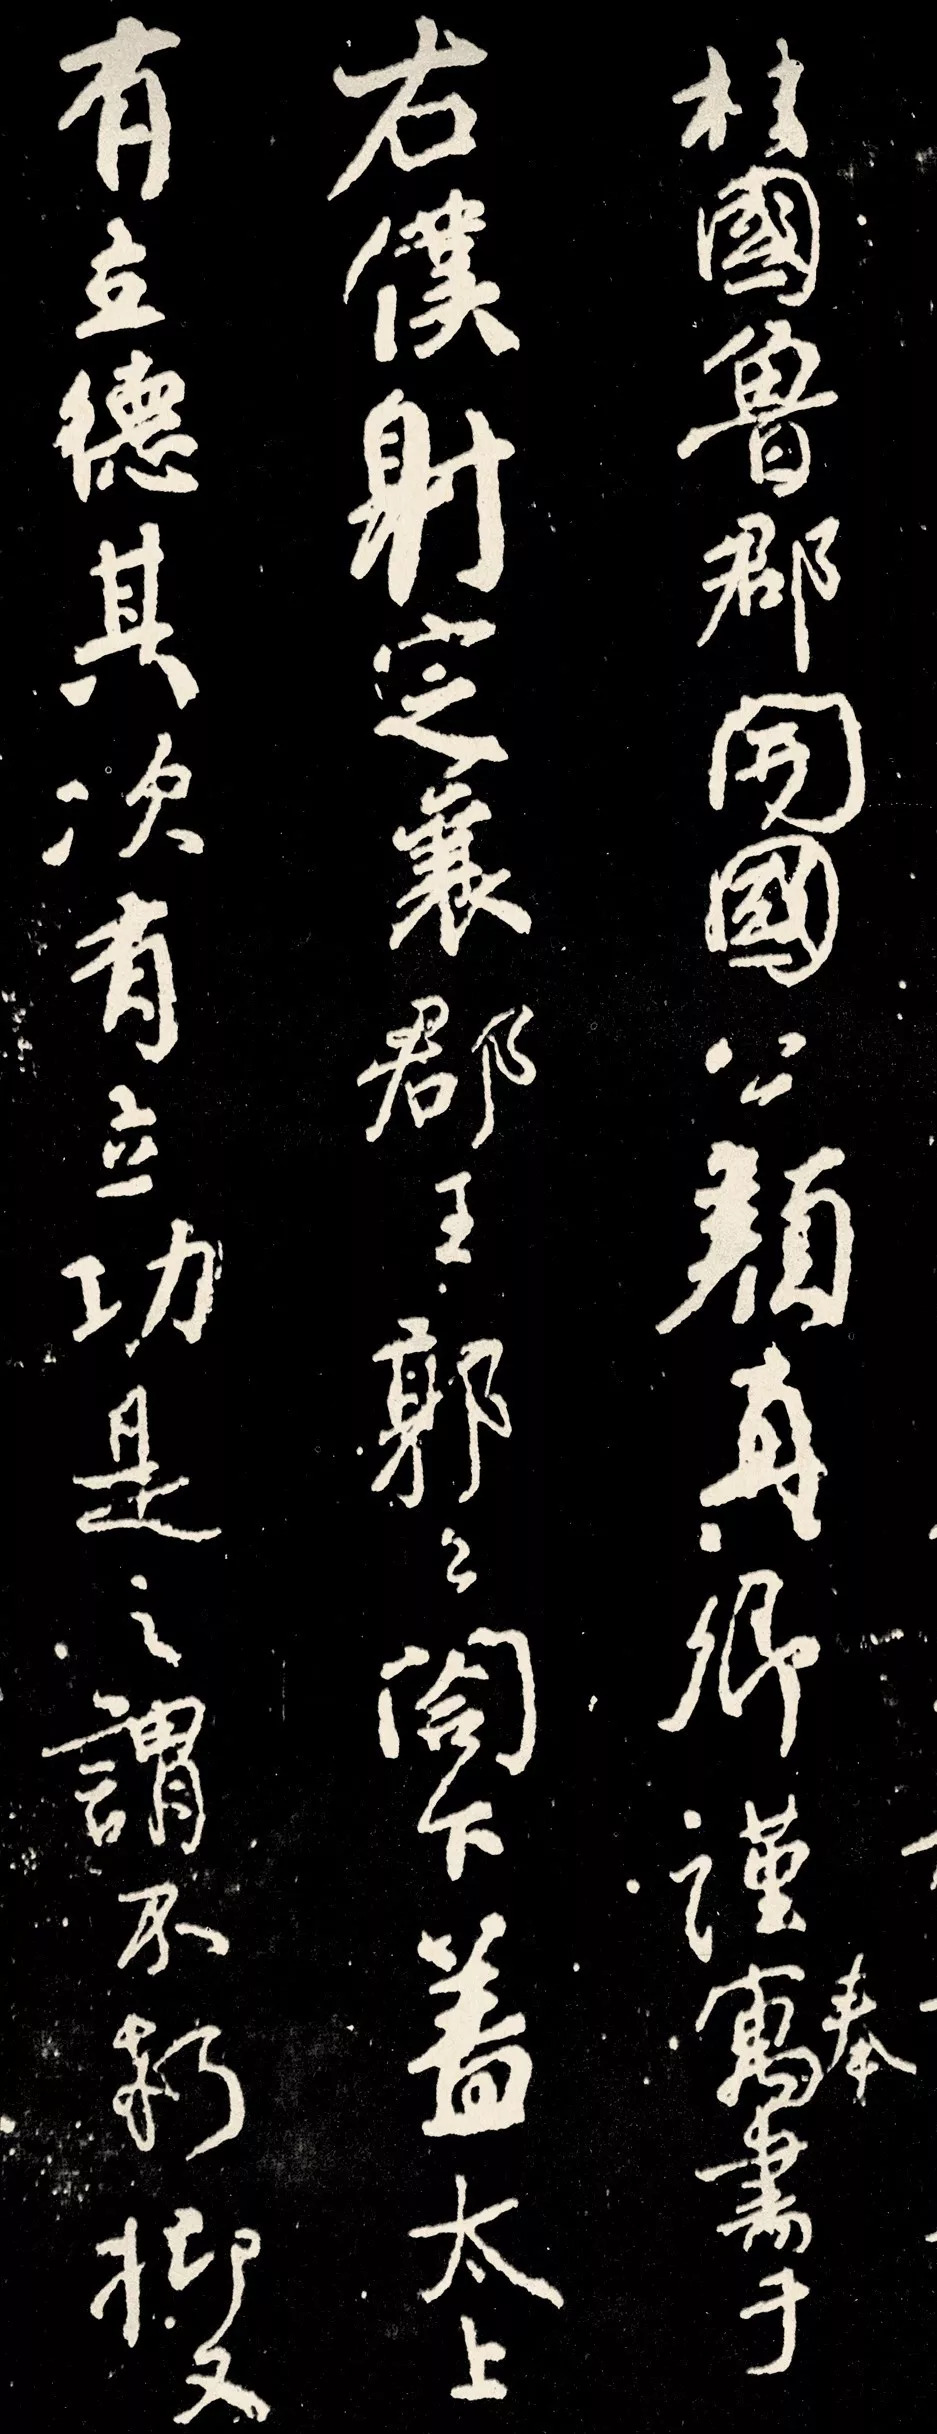 柱國魯郡開國公顏真卿謹奉寓書于
右僕射定襄郡王郭公閤下蓋太上
有立德其次有立功是之謂不朽抑又